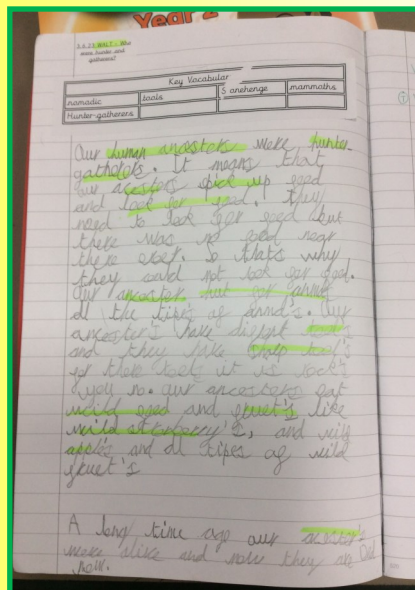 Year 2
3.6.23 WALT - Who
were hunter and
gatherers?
Key Vocabular
nomadic
tools
S anehenge
mammoths
Hunter-gatherers
Our human ancestors were hunter-
gatherers. It means that
our acestors pick up food
and look for food. they
need to look for food but
there was no food near
there ever. so thats why
they could not look for food.
Our ancester hut for
al the tipes of our
ancester's have diffent tools
and they have tool's
for there tools it is rock's
if you no. our ancestors eat
wild and fruet's like
wild and wild
apple's and al tipes of wild
fruet's
A long time ago our
were alive and now they are
now.